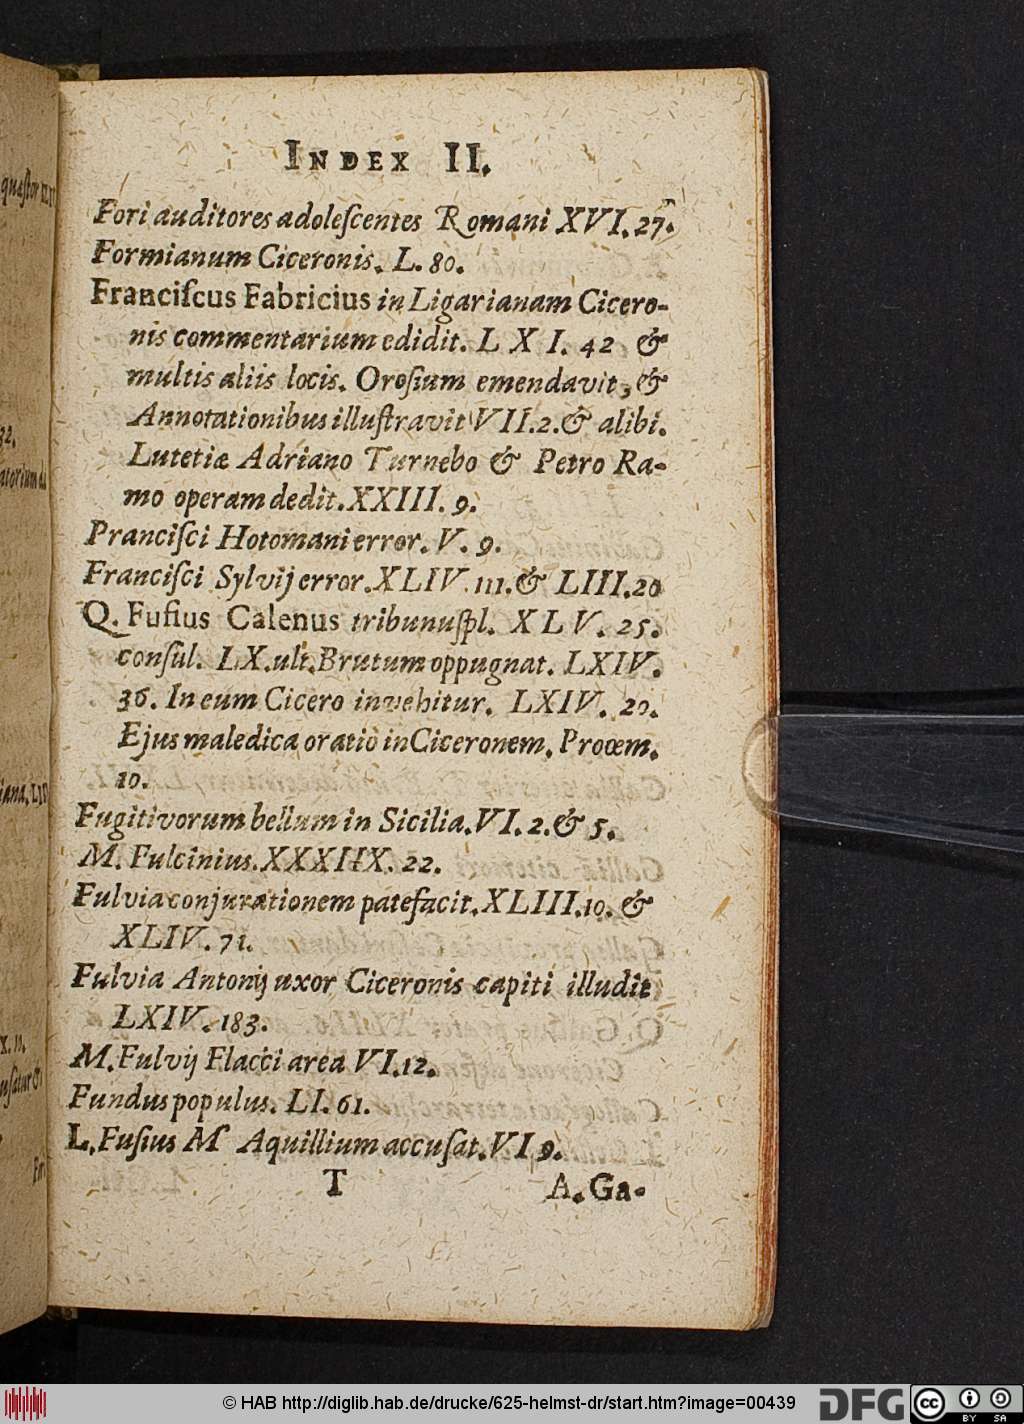 INDEX II.
Fori auditores adoleſcentes Romani XVI. 27.
Formianum Ciceronis. L. 80.
Franciſcus Fabricius in Ligarianam Cicero-
nis commentarium edidit. L X I. 42 &
multis aliis locis. Oroſium emendavit, &
Annotationibus illuſtravit VII. 2. & alibi.
Lutetiæ Adriano Turnebo & Petro Ra-
mo operam dedit. XXIII. 9.
Pranciſci Hotomani error. V. 9.
Franciſci Sylvij error. XLIV. 111. & LIII. 20
Q. Fufius Calenus tribunuſpl. X L V. 25.
conſul. LX. ult. Brutum oppugnat. LXIV.
36. In eum Cicero invehitur. LXIV. 20.
Ejus maledica oratio in Ciceronem. Proœm.
10.
Fugitivorum bellum in Sicilia. VI. 2. & 5.
M. Fulcinius. XXXIIX. 22.
Fulvia conjurationem patefacit. XLIII. 10. &
XLIV. 71.
Fulvia Antonij uxor Ciceronis capiti illudit
LXIV. 183.
M. Fulvij Flacci area VI. 12.
Fundus populus. LI. 61.
L. Fuſius M Aquillium accuſat. VI 9.
T A. Ga-
© HAB http://diglib.hab.de/drucke/625-helmst-dr/start.htm?image=00439
DFG
cc
BY SA